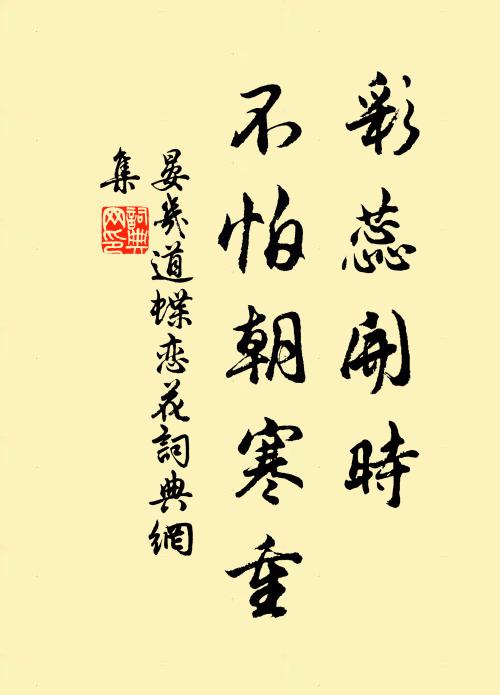 彩蕊開時
不怕朝寒重
晏幾道蝶恋花詞典網
集
詞典网印